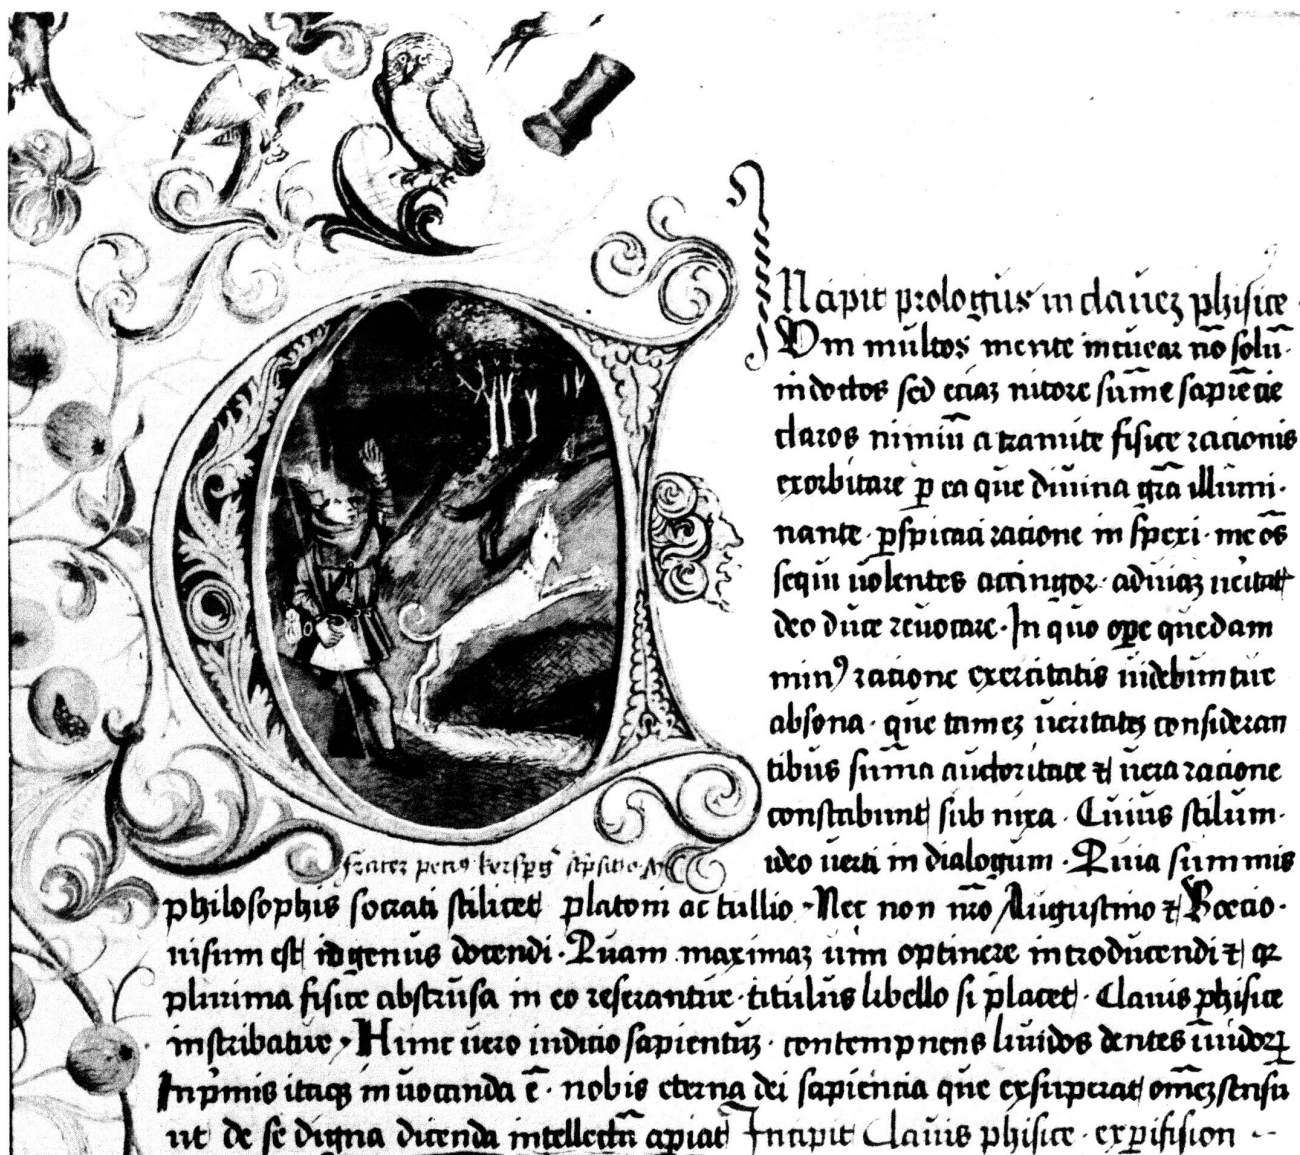 INcipit prologus in clauez phisice
Cvm multos mente intuear nō solū
indoctos sed etiaz nitore sum̄e sapiētie
claros nimiū a tramite fisice rationis
exorbitare ꝑ ea que diuina gr̄a illumi
nante · ꝑspicaci ratione inspexi · me oēs
sequi uolentes attingor · ad uiaz
deo duce reuocare · In quo oꝑe quedam
minꝰ ratione exercitatis uidebuntur
absona · que tamez ueritatez consideran
tibus sum̄a auctoritate ⁊ uera ratione
constabunt sub nixa · Cuius stilum
ideo uerti in dialogum · Quia summis
frater petrꝰ
philosophis socrati scilicet platoni ac tullio · Nec non nr̄o Augustino ⁊ Boecio ·
uisum est id genus docendi · Quam maximaz uim optinere introducendi ⁊ qr
plurima fisice abstrusa in eo reserantur · titulus libello si placet · Clauis phisice
inscribatur · Hinc uero iudicio sapientuz · contempnens liuidos dentes īuidoꝝ
Inprimis itaqꝫ inuocanda ē · nobis eterna dei sapientia que exsuperat om̄ez sensū
ut de se digna dicenda intellectū aꝑiat Incipit Clauis phisice ·